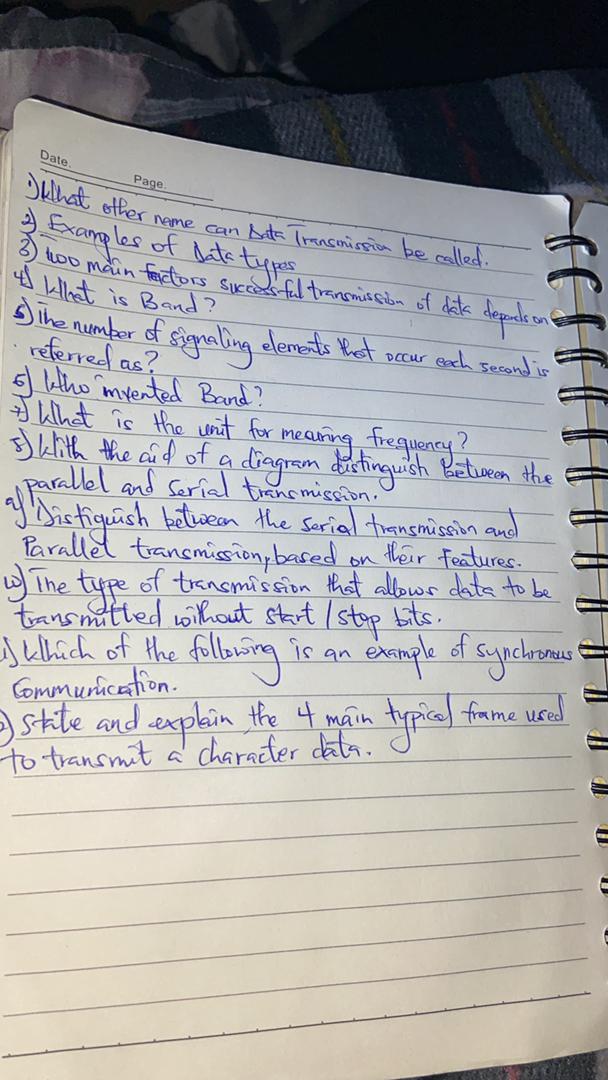 Date.
Page.
1) What other name can Data Transmission be called.
2) Examples of Data types
3) Two main factors successful transmission of data depends on
4) What is Band?
5) The number of signaling elements that occur each second is
referred as?
6) Who invented Band?
7) What is the unit for mearing frequency?
8) With the aid of a diagram distinguish between the
parallel and serial transmission.
9) Distiguish between the serial transmission and
Parallel transmission, based on their features.
10) The type of transmission that allows data to be
transmitted without start / stop bits.
1) Which of the following is an example of synchronous
Communication.
2) State and explain the 4 main typical frame used
to transmit a character data.